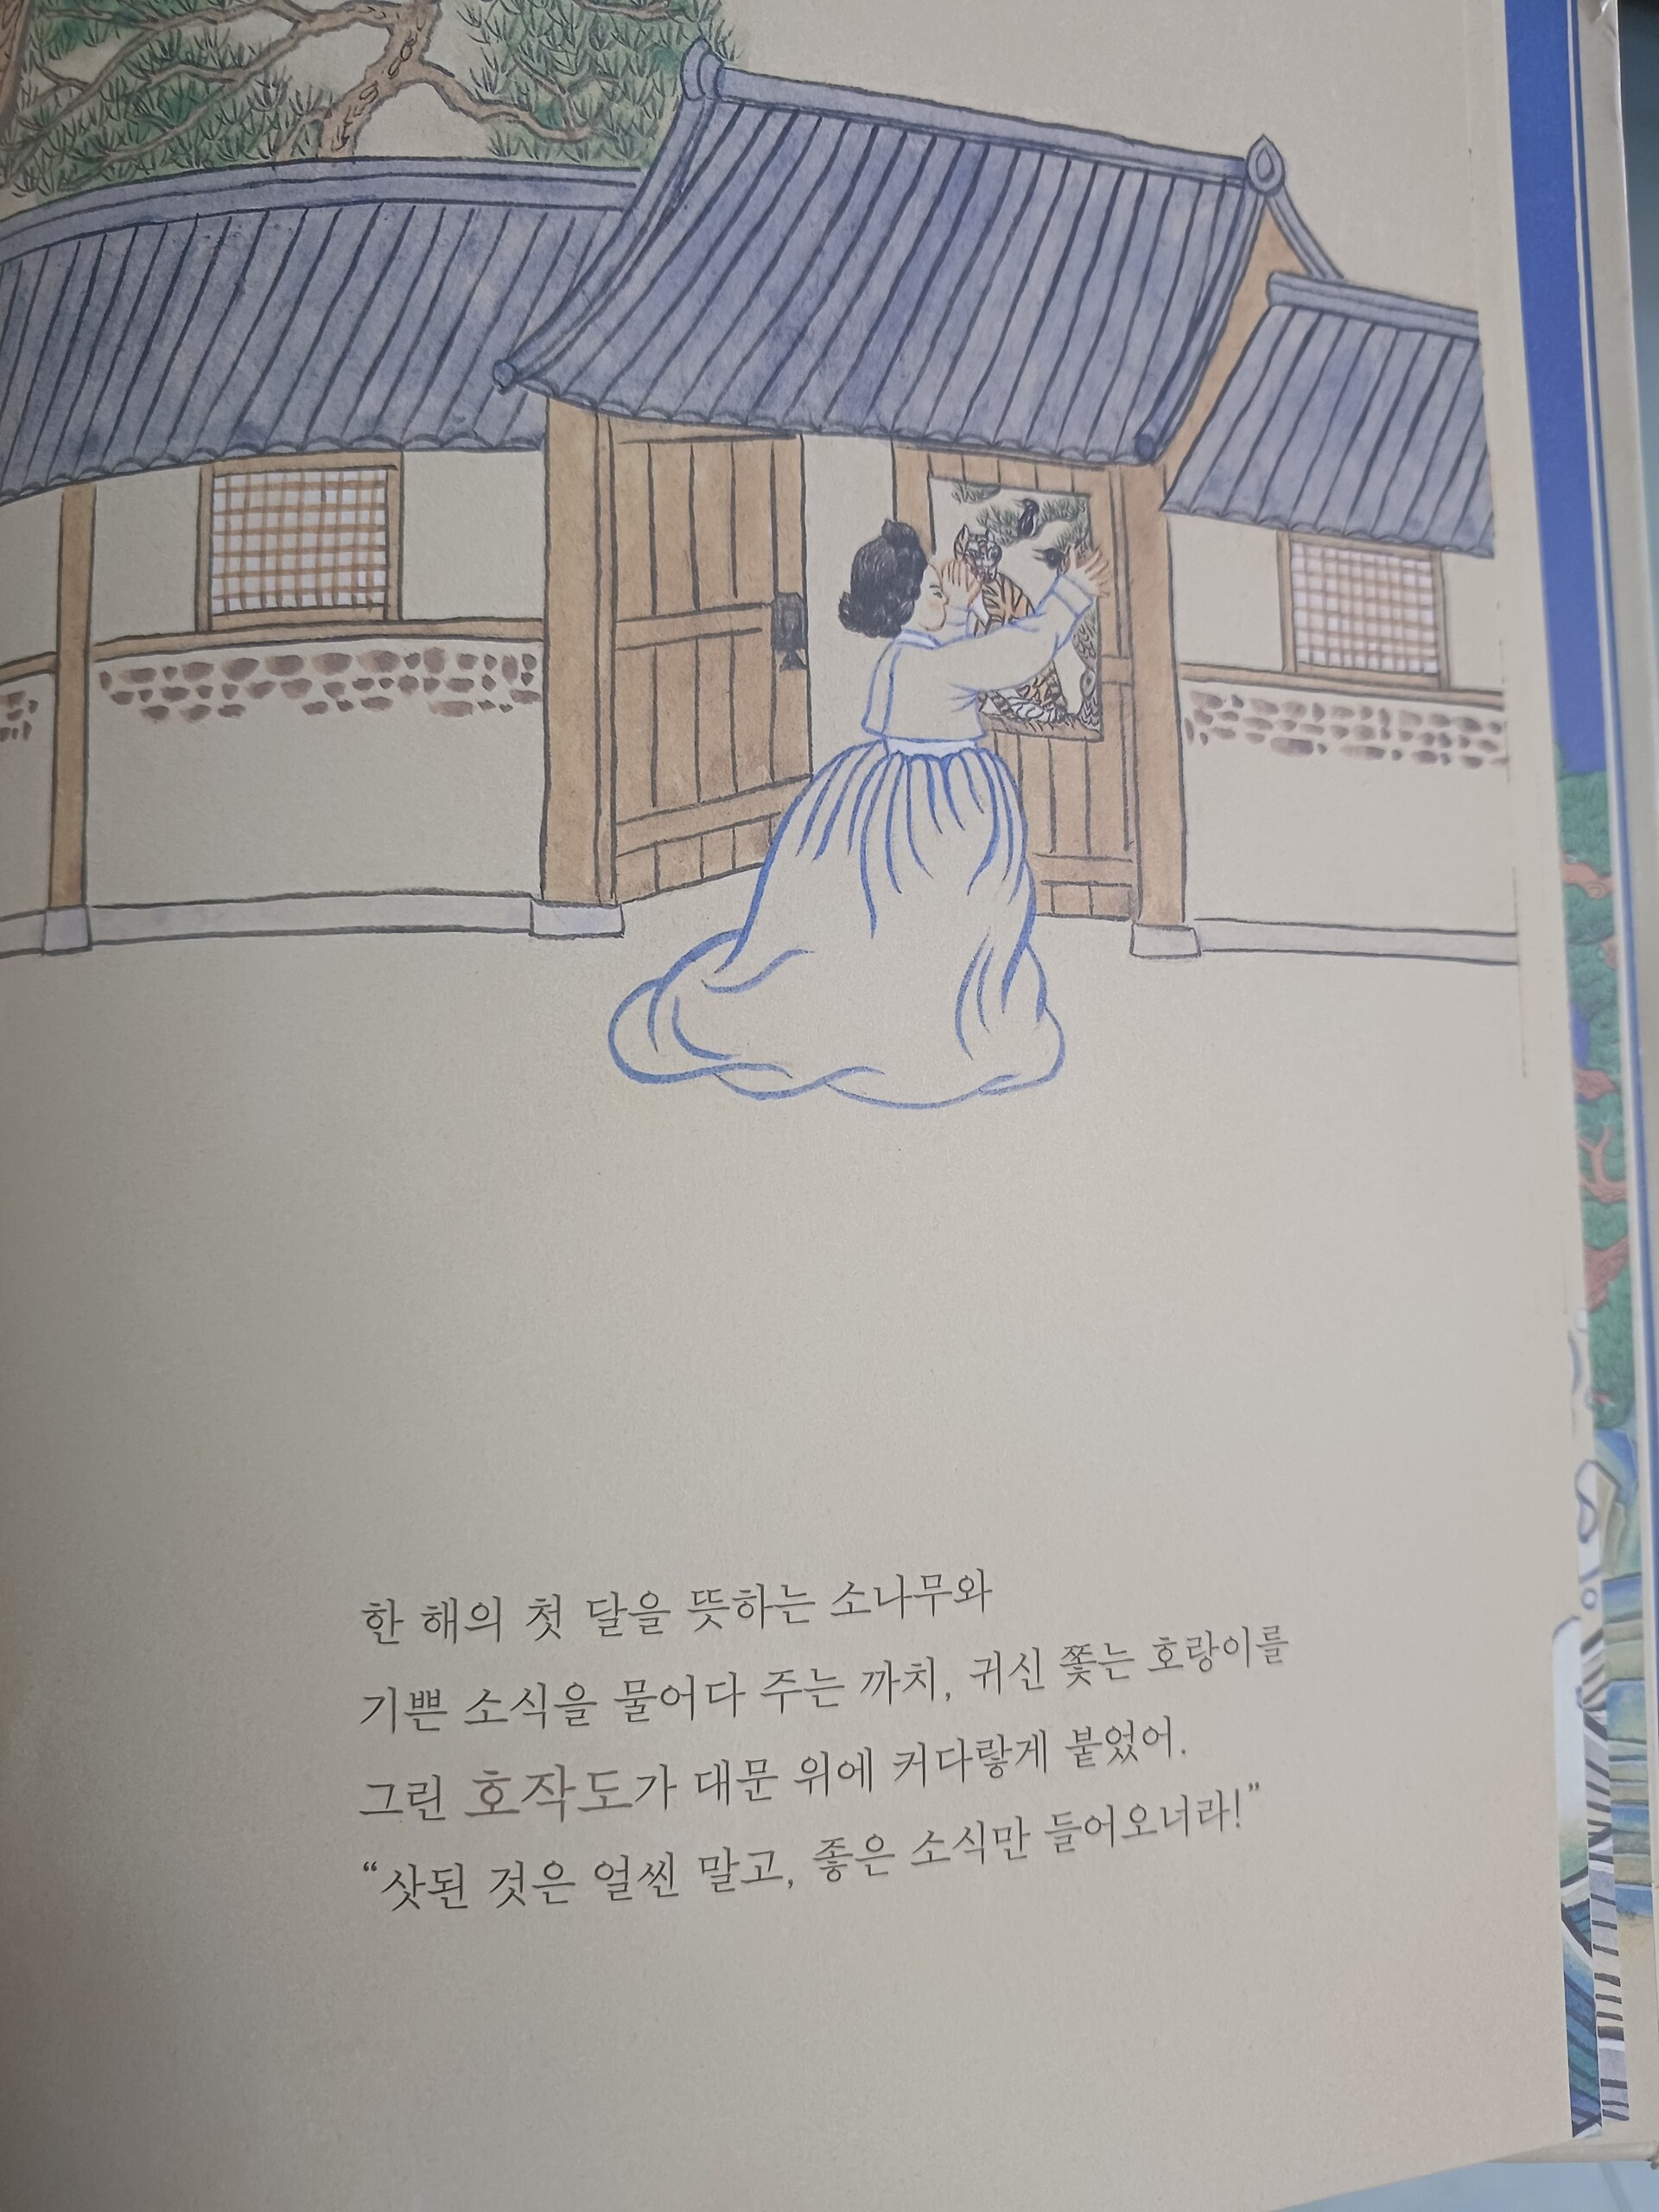 한 해의 첫 달을 뜻하는 소나무와
기쁜 소식을 물어다 주는 까치, 귀신 쫓는 호랑이를
그린 호작도가 대문 위에 커다랗게 붙었어.
“삿된 것은 얼씬 말고, 좋은 소식만 들어오너라!”